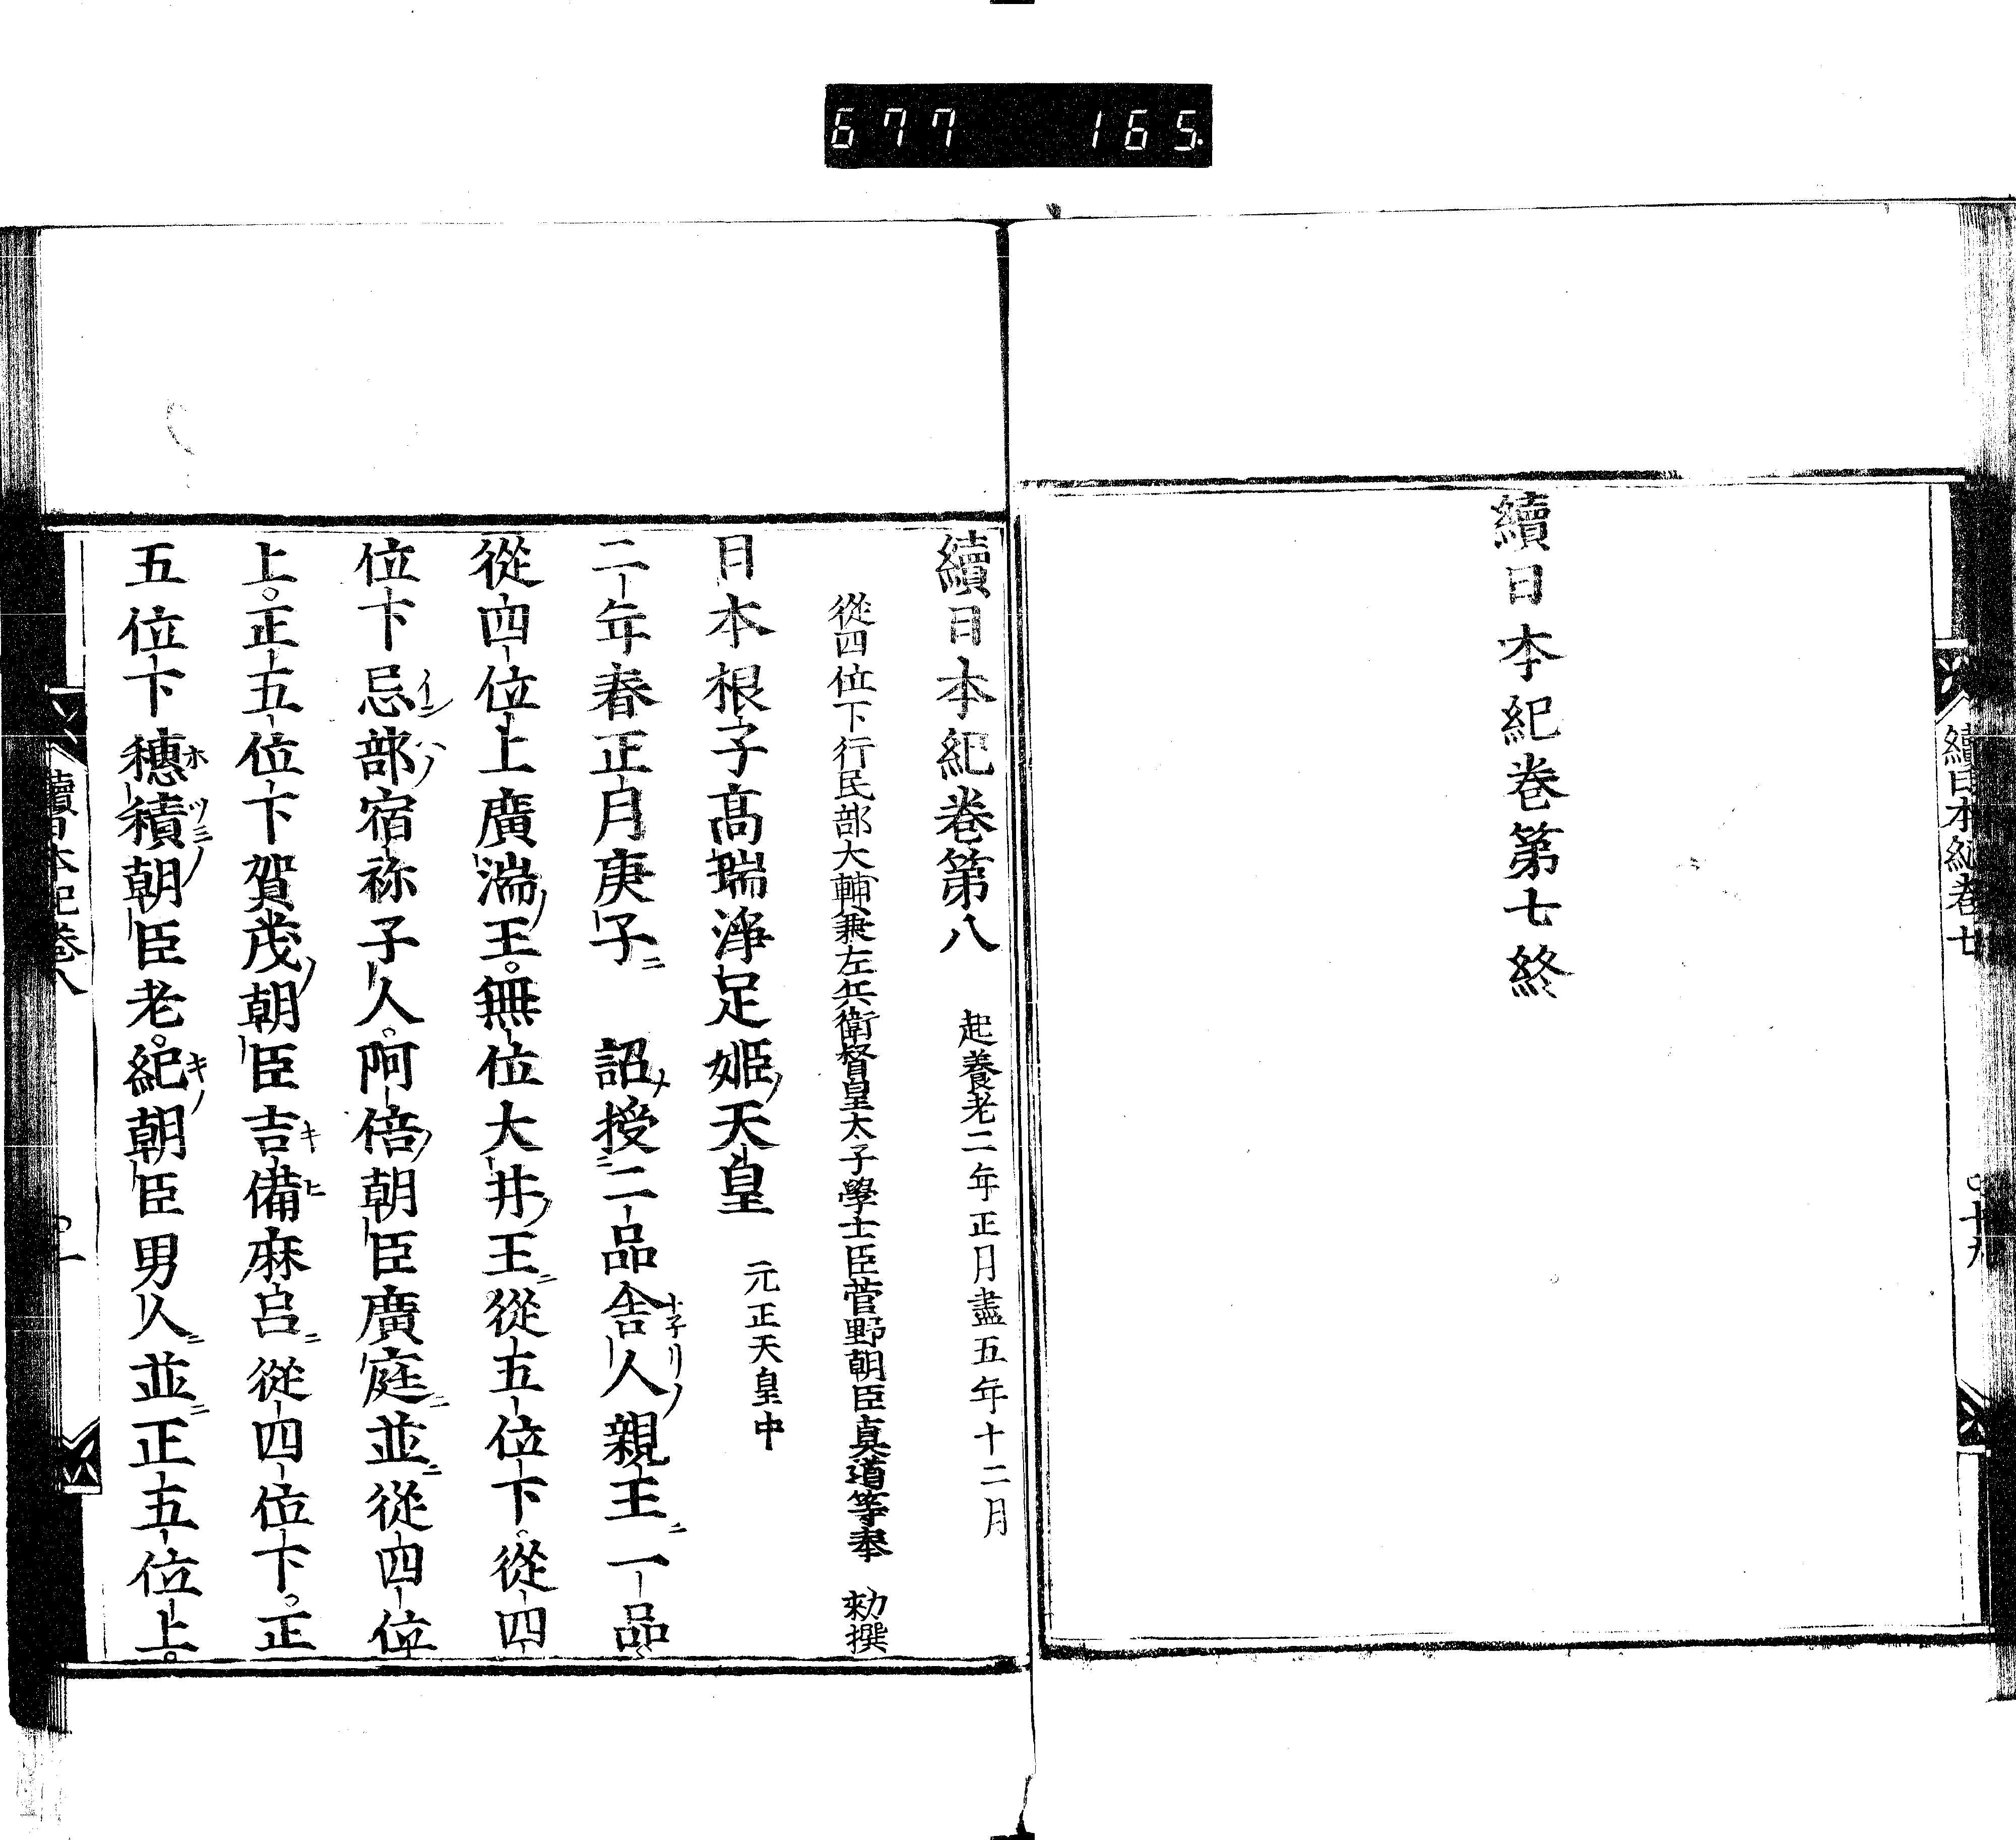 677 165
續日本紀卷七
十九
續日本紀卷第七終
續日本紀卷第八 起養老二年正月盡五年十二月
從四位下行民部大輔兼左兵衞督皇太子學士臣菅野朝臣真道等奉 勅撰
日本根子高瑞淨足姬天皇 元正天皇中
二年春正月庚子 詔授二品舍人親王一品
從四位上廣湍王。無位大井王從五位下。從四
位下忌部宿祢子人。阿倍朝臣廣庭並從四位
上。正五位下賀茂朝臣吉備麻呂從四位下。正
五位下穗積朝臣老。紀朝臣男人並正五位上。
續日本紀卷八
一